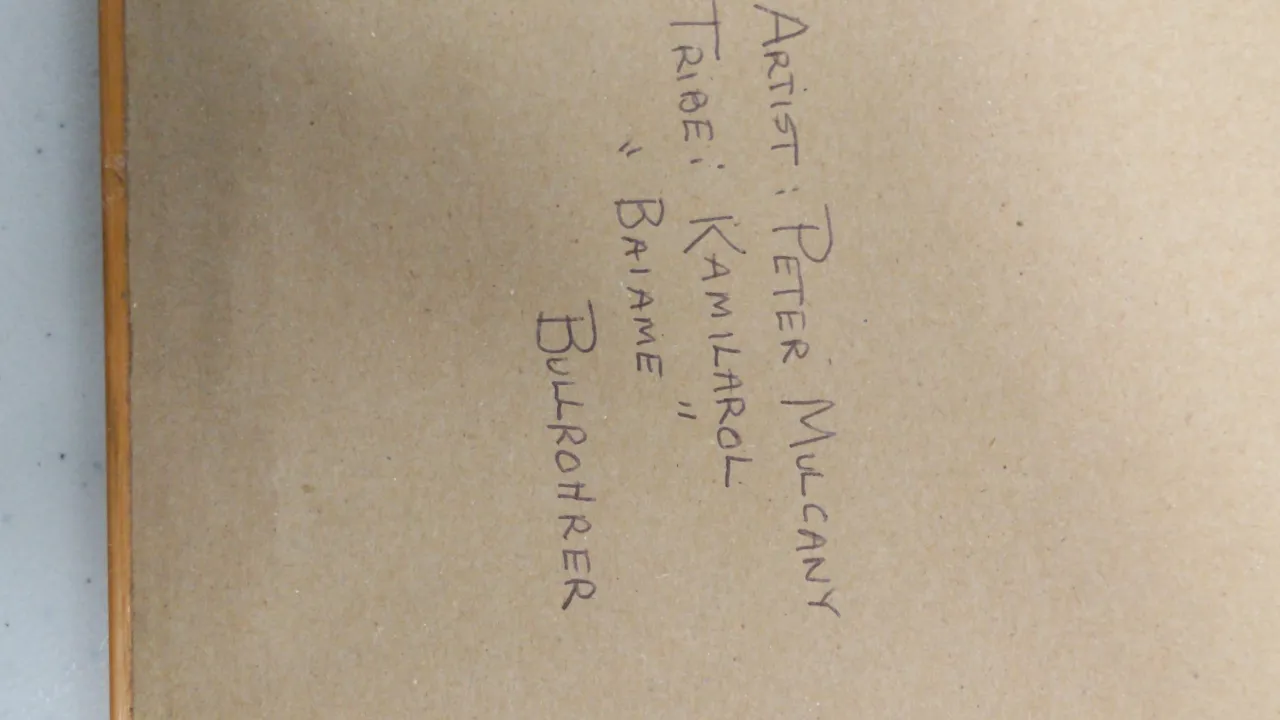 ARTIST: PETER MULCANY
TRIBE: KAMILAROL
" BAIAME "
BULLROHRER